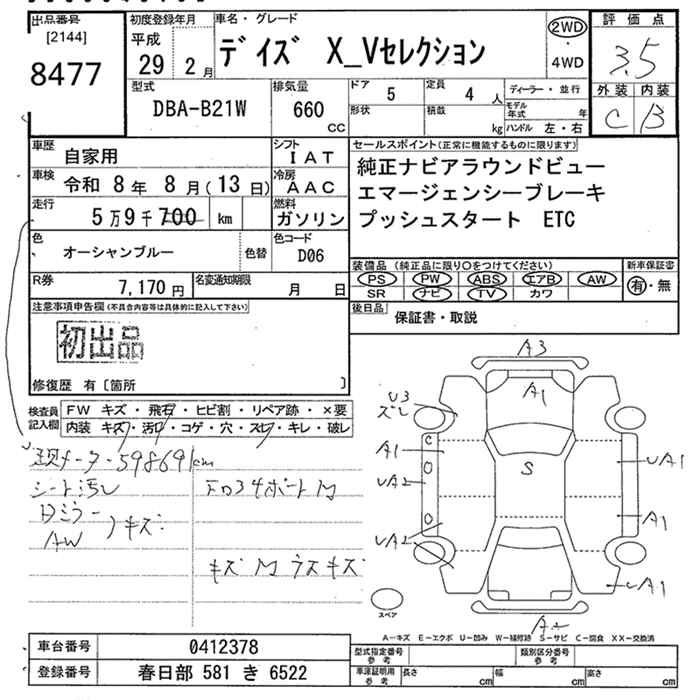 出品番号
[2144]
8477
初度登録年月
平成
29 2月
車名・グレード
デイズ X_Vセレクション
2WD
・
4WD
評価点
3.5
外装 内装
C B
型式
DBA-B21W
排気量
660
CC
ドア
5
定員
4人
ディーラー・並行
形状
積載
kg
モデル年式 年
ハンドル 左・右
車歴
自家用
シフト
IAT
車検
令和 8年 8月(13日)
冷房
AAC
走行
5万9千700 km
燃料
ガソリン
色
オーシャンブルー
色替
色コード
D06
R券
7,170円
名変通知期限
月 日
セールスポイント(正常に機能するものに限ります)
純正ナビアラウンドビュー
エマージェンシーブレーキ
プッシュスタート ETC
装備品(純正品に限り○をつけてください)
PS PW ABS エアB AW
SR ナビ TV カワ
新車保証書
有・無
後日品
保証書・取説
注意事項申告欄(不具合内容等は具体的に記入して下さい)
初出品
修復歴 有〔箇所 〕
検査員記入欄
FW キズ・飛石・ヒビ割・リペア跡・×要
内装 キズ・汚レ・コゲ・穴・スレ・キレ・破レ
メーター 59869km
シート汚レ
Dミラー
AW
キズ
キズ M ウスキズ
A3
A1
U3
ズレ
A1
UA2
C
S
UA1
A1
UA2
UA1
スペア
A-キズ E-エクボ U-凹み W-補修跡 S-サビ C-腐食 XX-交換済
車台番号
0412378
登録番号
春日部 581 き 6522
型式指定番号
参考
類別区分番号
参考
車庫証明用
参考
長さ cm
幅 cm
高さ cm